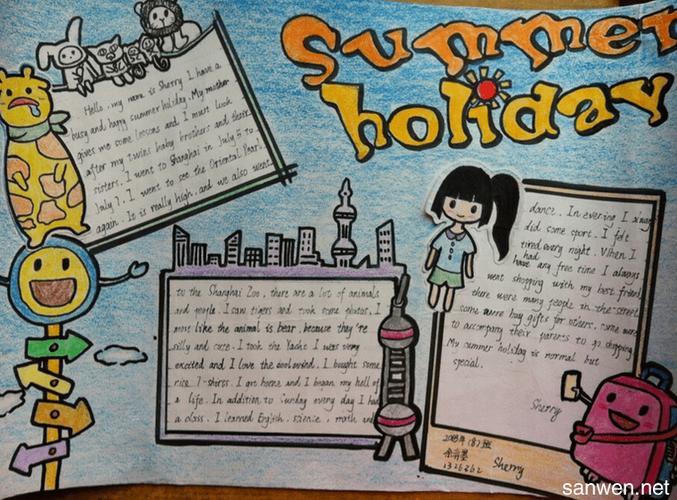 Summer
holiday
Hello, my name is Sherry I have a
busy and happy summer holiday. My mother
gives me some lessons and I must look
after my twins baby brothers and their
sisters. I went to Shanghai in July 5 to
July 7. I went to see the Oriental Pearl
again. It is really high. and we also went
to the Shanghai Zoo, there are a lot of animals
and people. I saw tigers and took some photos, I
most like the animal is bear, because they're
silly and cute. I took the Yacht I was very
excited and I love the cool wind. I bought some
nice T-shirts. I go home and I began my hell of
a life. In addition to Sunday every day I had
a class. I learned English, science, math and
dance. In evering I
did some sport. I felt
tired every night. When I
had
have any free time I always
went shopping with my best friend
there were many people in the street
some were buy gifts for others. some
to accompany their parents to go shopping
My summer holiday is normal but
special.
Sherry
Sherry
sanwen.net